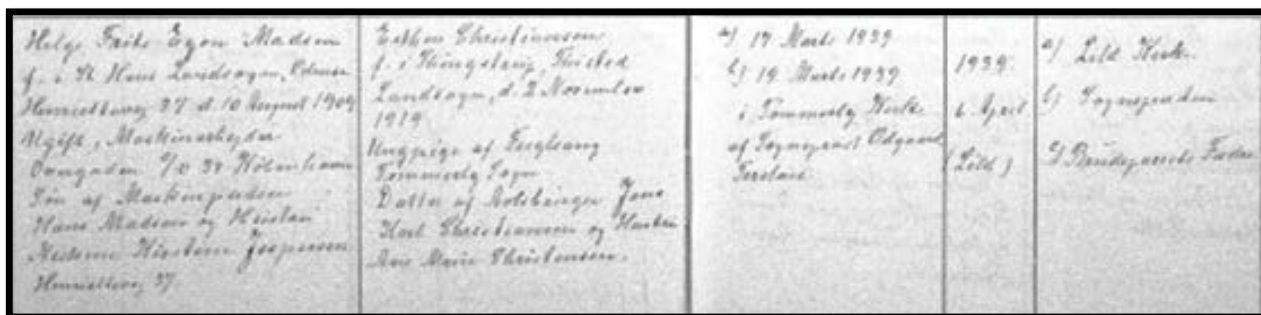 Helge Frits Egon Madsen
f. i St Hans Landsogn, Odense
Henriettevej 37 d. 10 August 1909
Ugift, Maskinarbejder
Søn af Maskinpudser
Hans Madsen og Hustru
Kirstine Jespersen
Henriettevej 37.
Esther Christiansen
f. i Thingstrup, Thisted
Landsogn, d. 2 November
1919
Ungpige af Fuglsang
Tømmerby Sogn
Datter af Jens
Karl Christiansen og Hustru
Ane Marie Christensen.
a) 19 Marts 1939
b) 19 Marts 1939
i Tømmerby Kirke
af Sognepræst Odgaard
1939.
6 April
(Lild)
a) Lild Kirke
b) Sognepræsten